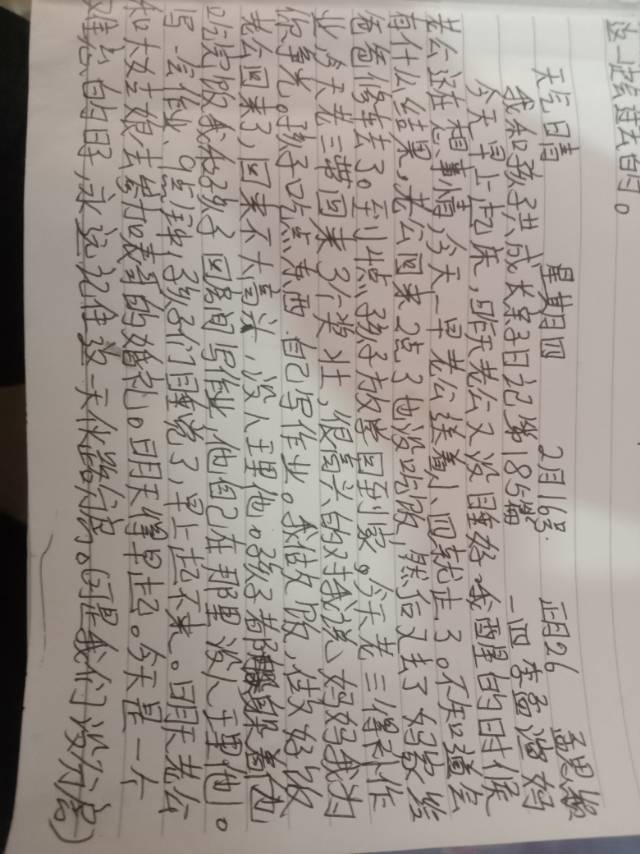 这一路过去的。
天气晴 星期四 2月16号. 正月26 孟思颖
我和孩子共成长亲子日记第185篇 一四李孟 妈
今天早上起床,昨天老公又没睡好我醒的时候
老公还在想事情,今天一早老公送着小四就走了。不知道会
有什么结果,老公回来2点了也没吃饭,然后又去了妈家给
爸爸修车去了。到4点孩子放学回到家。今天老三得补作
业,今天老三带回来3个奖壮,很高兴的对我说妈妈我为
你争光。孩子吃点东西.自己写作业。我做饭,做好饭
老公回来了,回来不大高兴,没人理他。孩子都躲着他
吃完饭我和孩子回房间写作业,他自己在那里没人理他。
写一会作业、9点钟,孩子们睡说了,早上起不来。明天老公
和大姑娘去参加表哥的婚礼。明天得早起。今天是一个
难忘的日子,永远记住这一天 。(可是我们没分房)